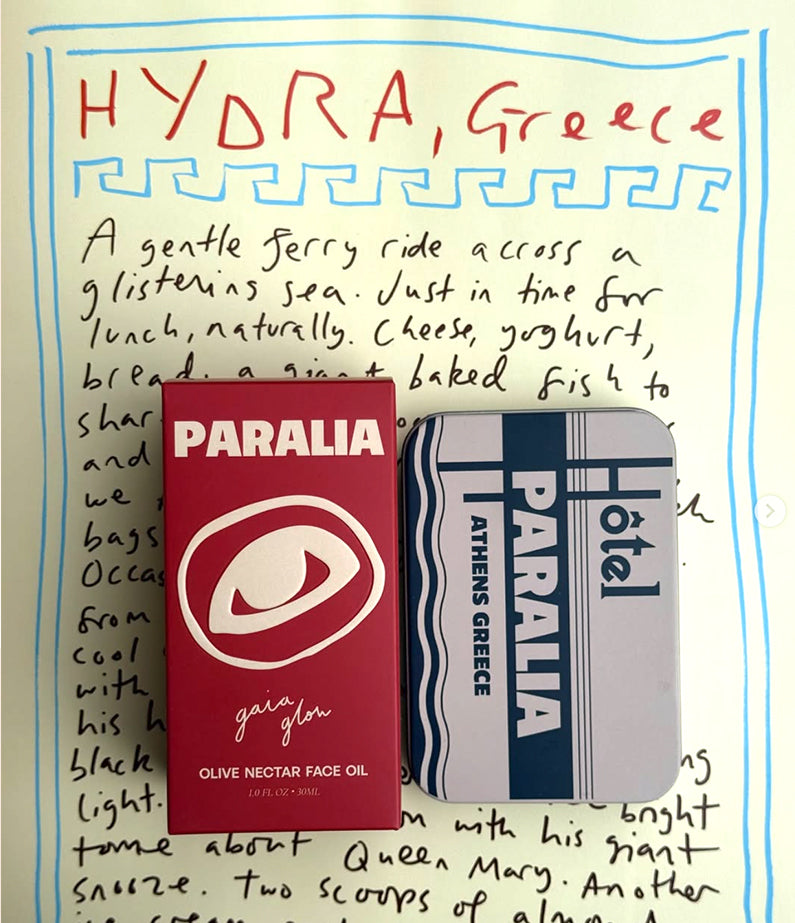 HYDRA, Greece
A gentle ferry ride across a
glistening sea. Just in time for
lunch, naturally. Cheese, yoghurt,
bread, a giant baked fish to
shar
and
we
bags
Occas
from
cool
with
his h
black
light.
bright
tome about Queen Mary. Another
with his giant
snooze. Two scoops of
PARALIA
gaia
glow
OLIVE NECTAR FACE OIL
1.0 FL OZ • 30ML
Hôtel
PARALIA
ATHENS GREECE